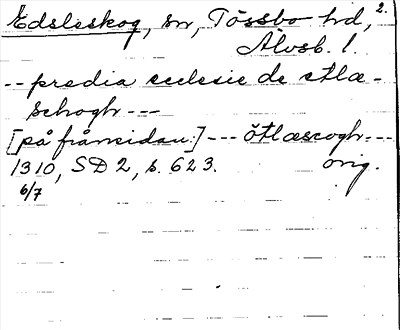 Edsleskog, sn, Tössbo hd, 2.
Älvsb. l.
-- predia ecclesie de etlæ-
schogh ---
[på frånsidan:] --- ötlæscogh ---
1310, SD 2, s. 623. orig.
6/7